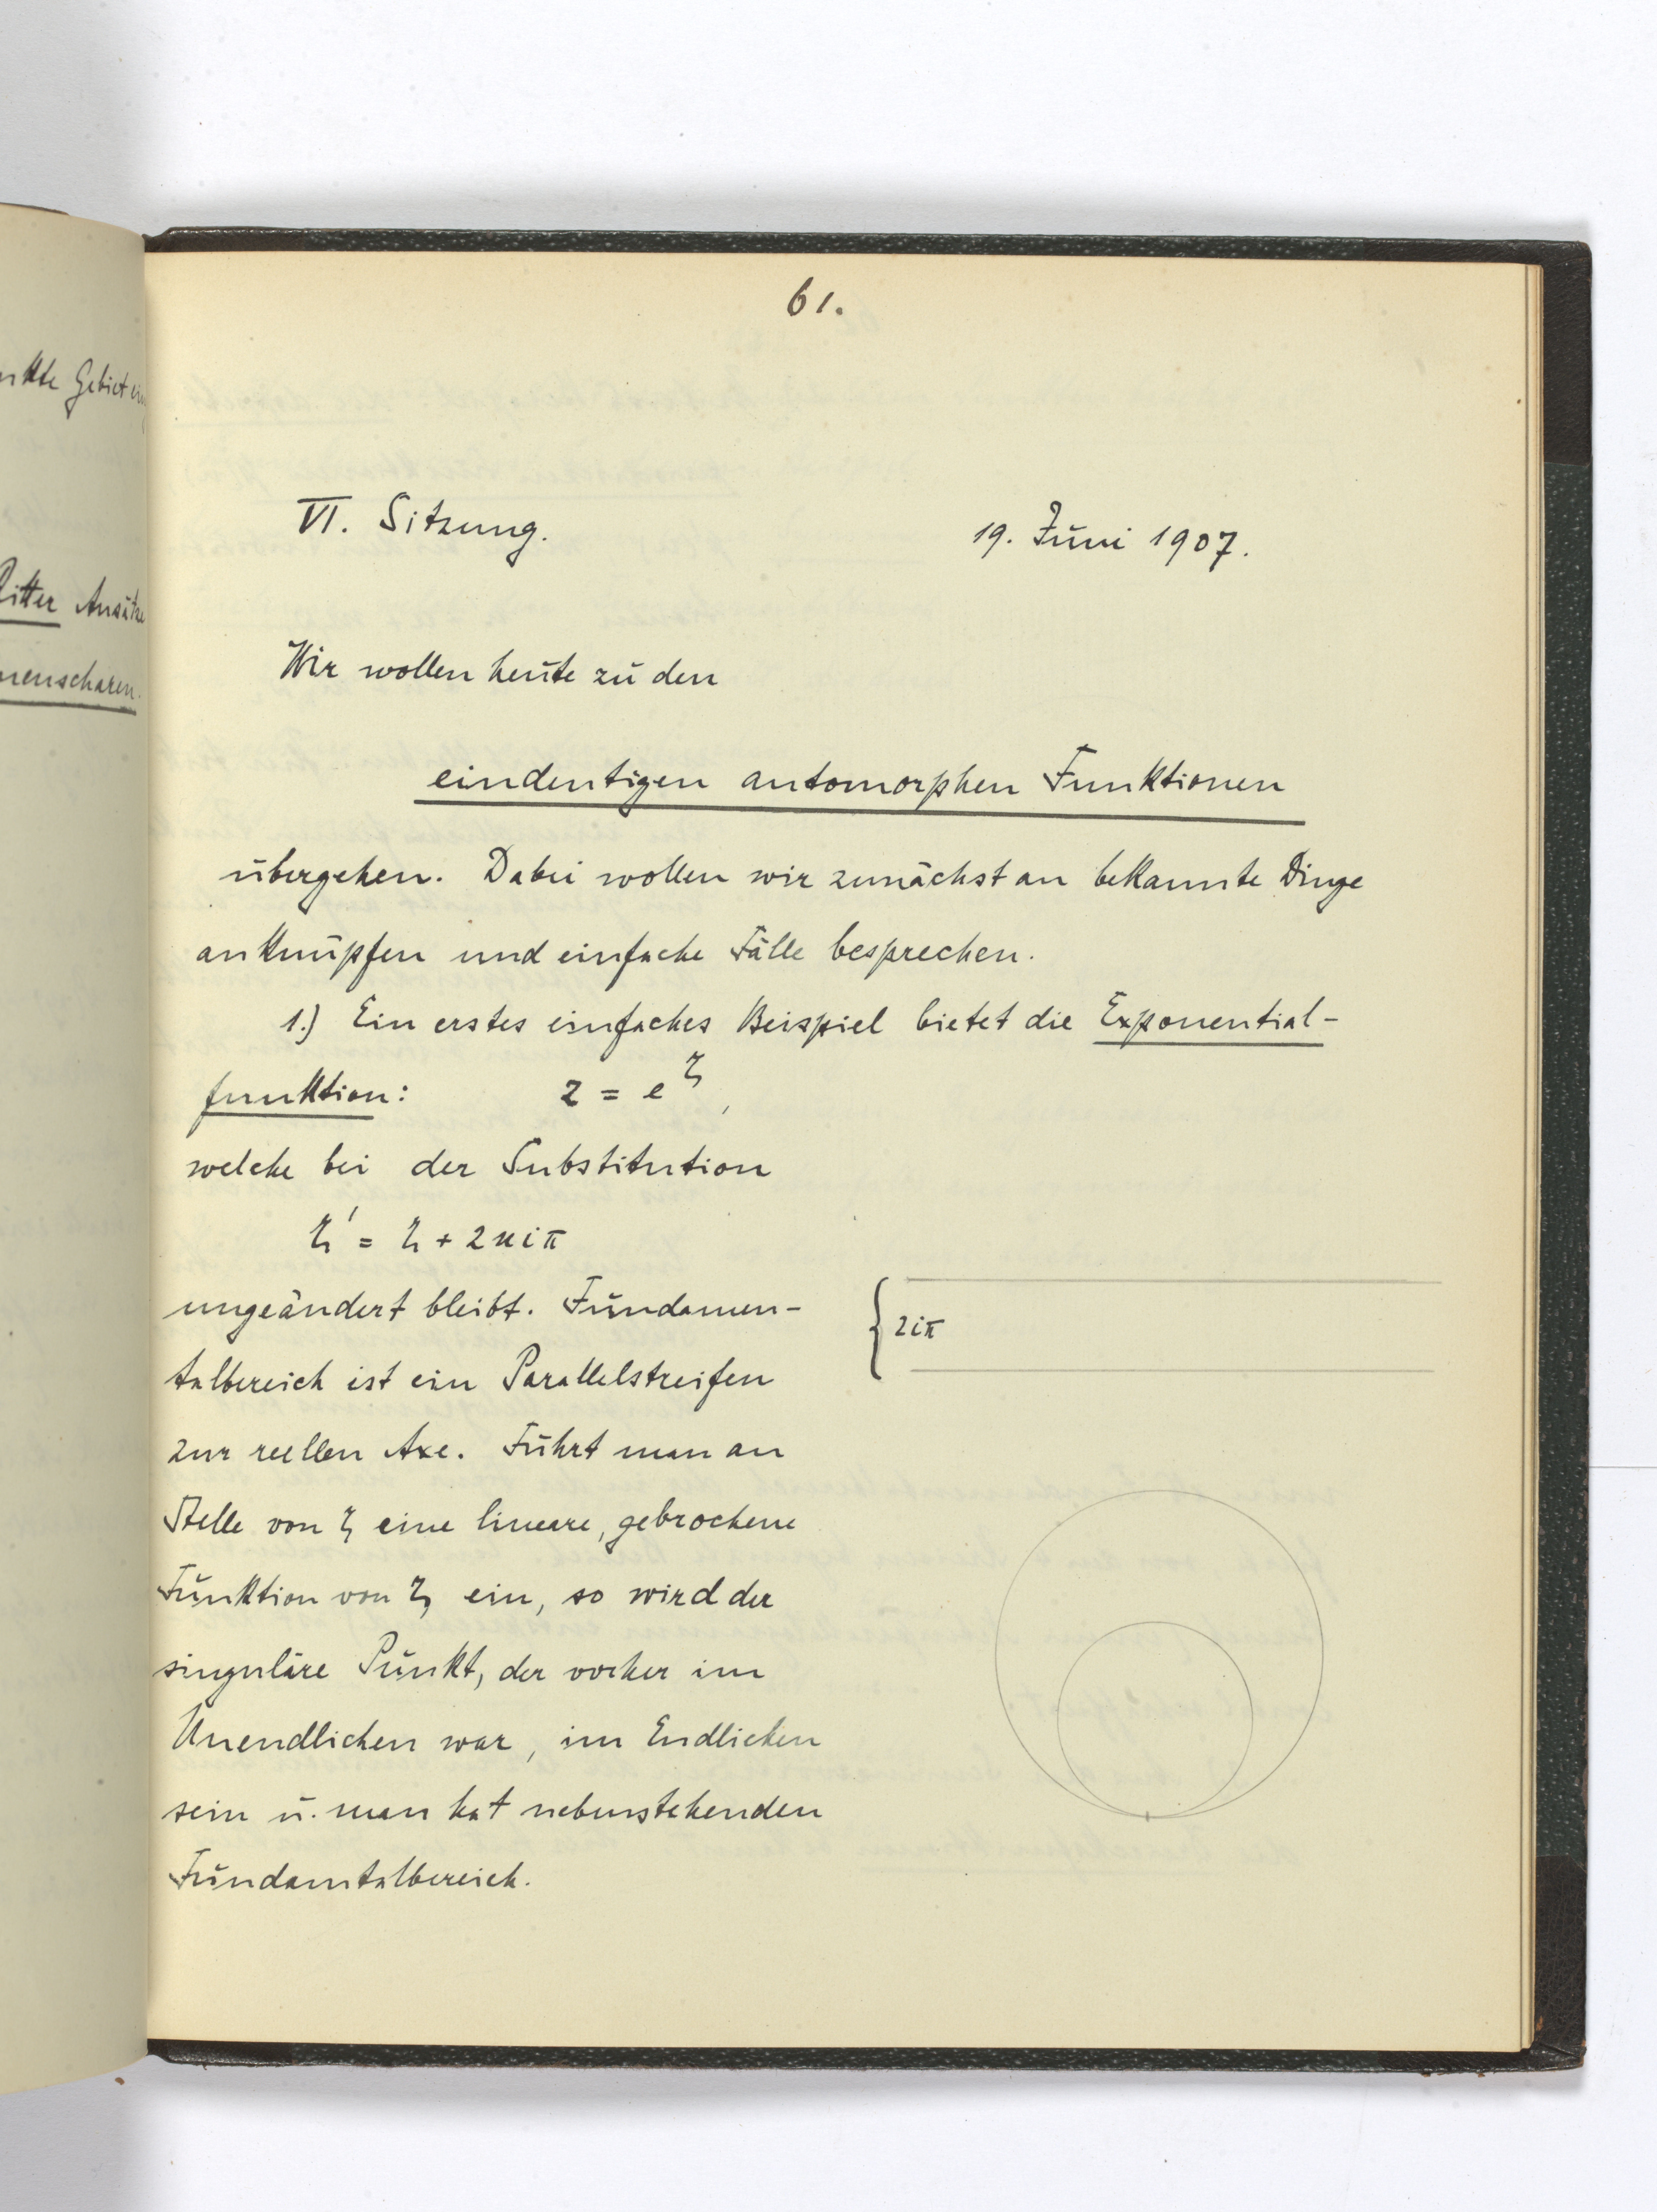 61.
nkte Gebiet
Ritter Ansätze
nenscharen.
VI. Sitzung.
19. Juni 1907.
Wir wollen heute zu den
eindeutigen automorphen Funktionen
übergehen. Dabei wollen wir zunächst an bekannte Dinge
anknüpfen und einfache Fälle besprechen.
1.) Ein erstes einfaches Beispiel bietet die Exponential-
funktion: z = e^ζ,
welche bei der Substitution
ζ' = ζ + 2niπ
ungeändert bleibt. Fundamen-
talbereich ist ein Parallelstreifen
zur reellen Axe. Führt man an
Stelle von ζ eine lineare, gebrochene
Funktion von ζ ein, so wird der
singuläre Punkt, der vorher im
Unendlichen war, im Endlichen
sein u. man hat nebenstehenden
Fundamtalbereich.
2iπ